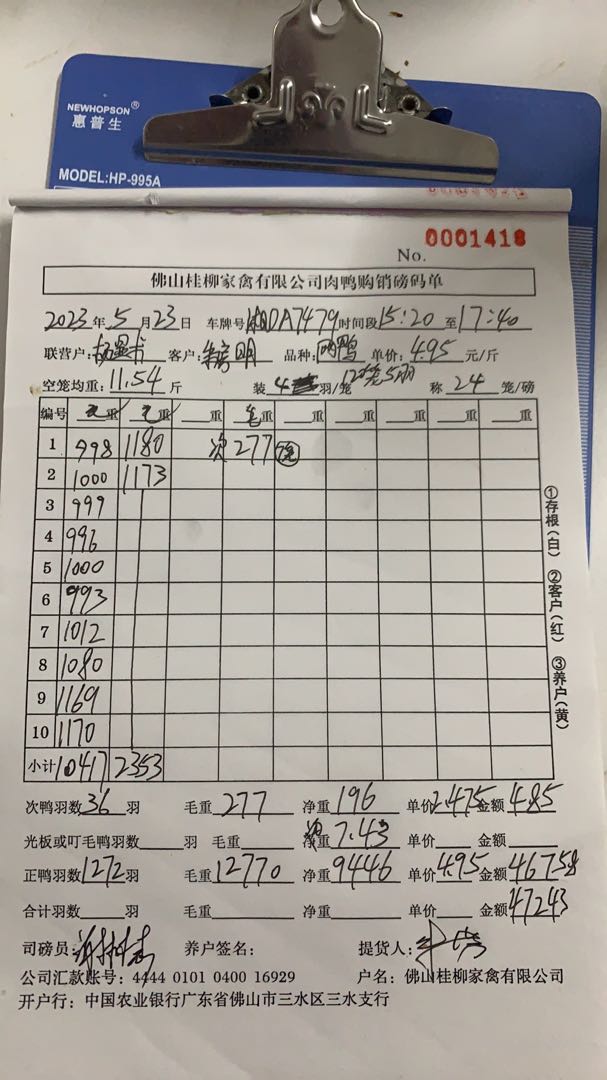 NEWHOPSON®
惠普生
MODEL:HP-995A
No. 0001418
佛山桂柳家禽有限公司肉鸭购销磅码单
2023年5月23日 车牌号 DA7479 时间段15:20至17:40
联营户: 客户: 明 品种:肉鸭 单价:4.95元/斤
空笼均重:11.54斤 装4羽/笼 12笼5羽 称24笼/磅
编号 毛重 毛重 重 毛重 重 重 重 重
1 998 1180 次 277 7笼
2 1000 1173
3 999
4 996
5 1000
6 993
7 1012
8 1080
9 1169
10 1170
小计 10417 2353
次鸭羽数36羽 毛重277 净重196 单价2.475 金额485
光板或叮毛鸭羽数 羽 毛重 净重 7.43 单价 金额
正鸭羽数1272羽 毛重12770 净重9446 单价4.95 金额46758
合计羽数 羽 毛重 净重 单价 金额47243
司磅员: 养户签名: 提货人:
公司汇款账号:4444 0101 0400 16929 户名:佛山桂柳家禽有限公司
开户行:中国农业银行广东省佛山市三水区三水支行
①存根(白) ②客户(红) ③养户(黄)